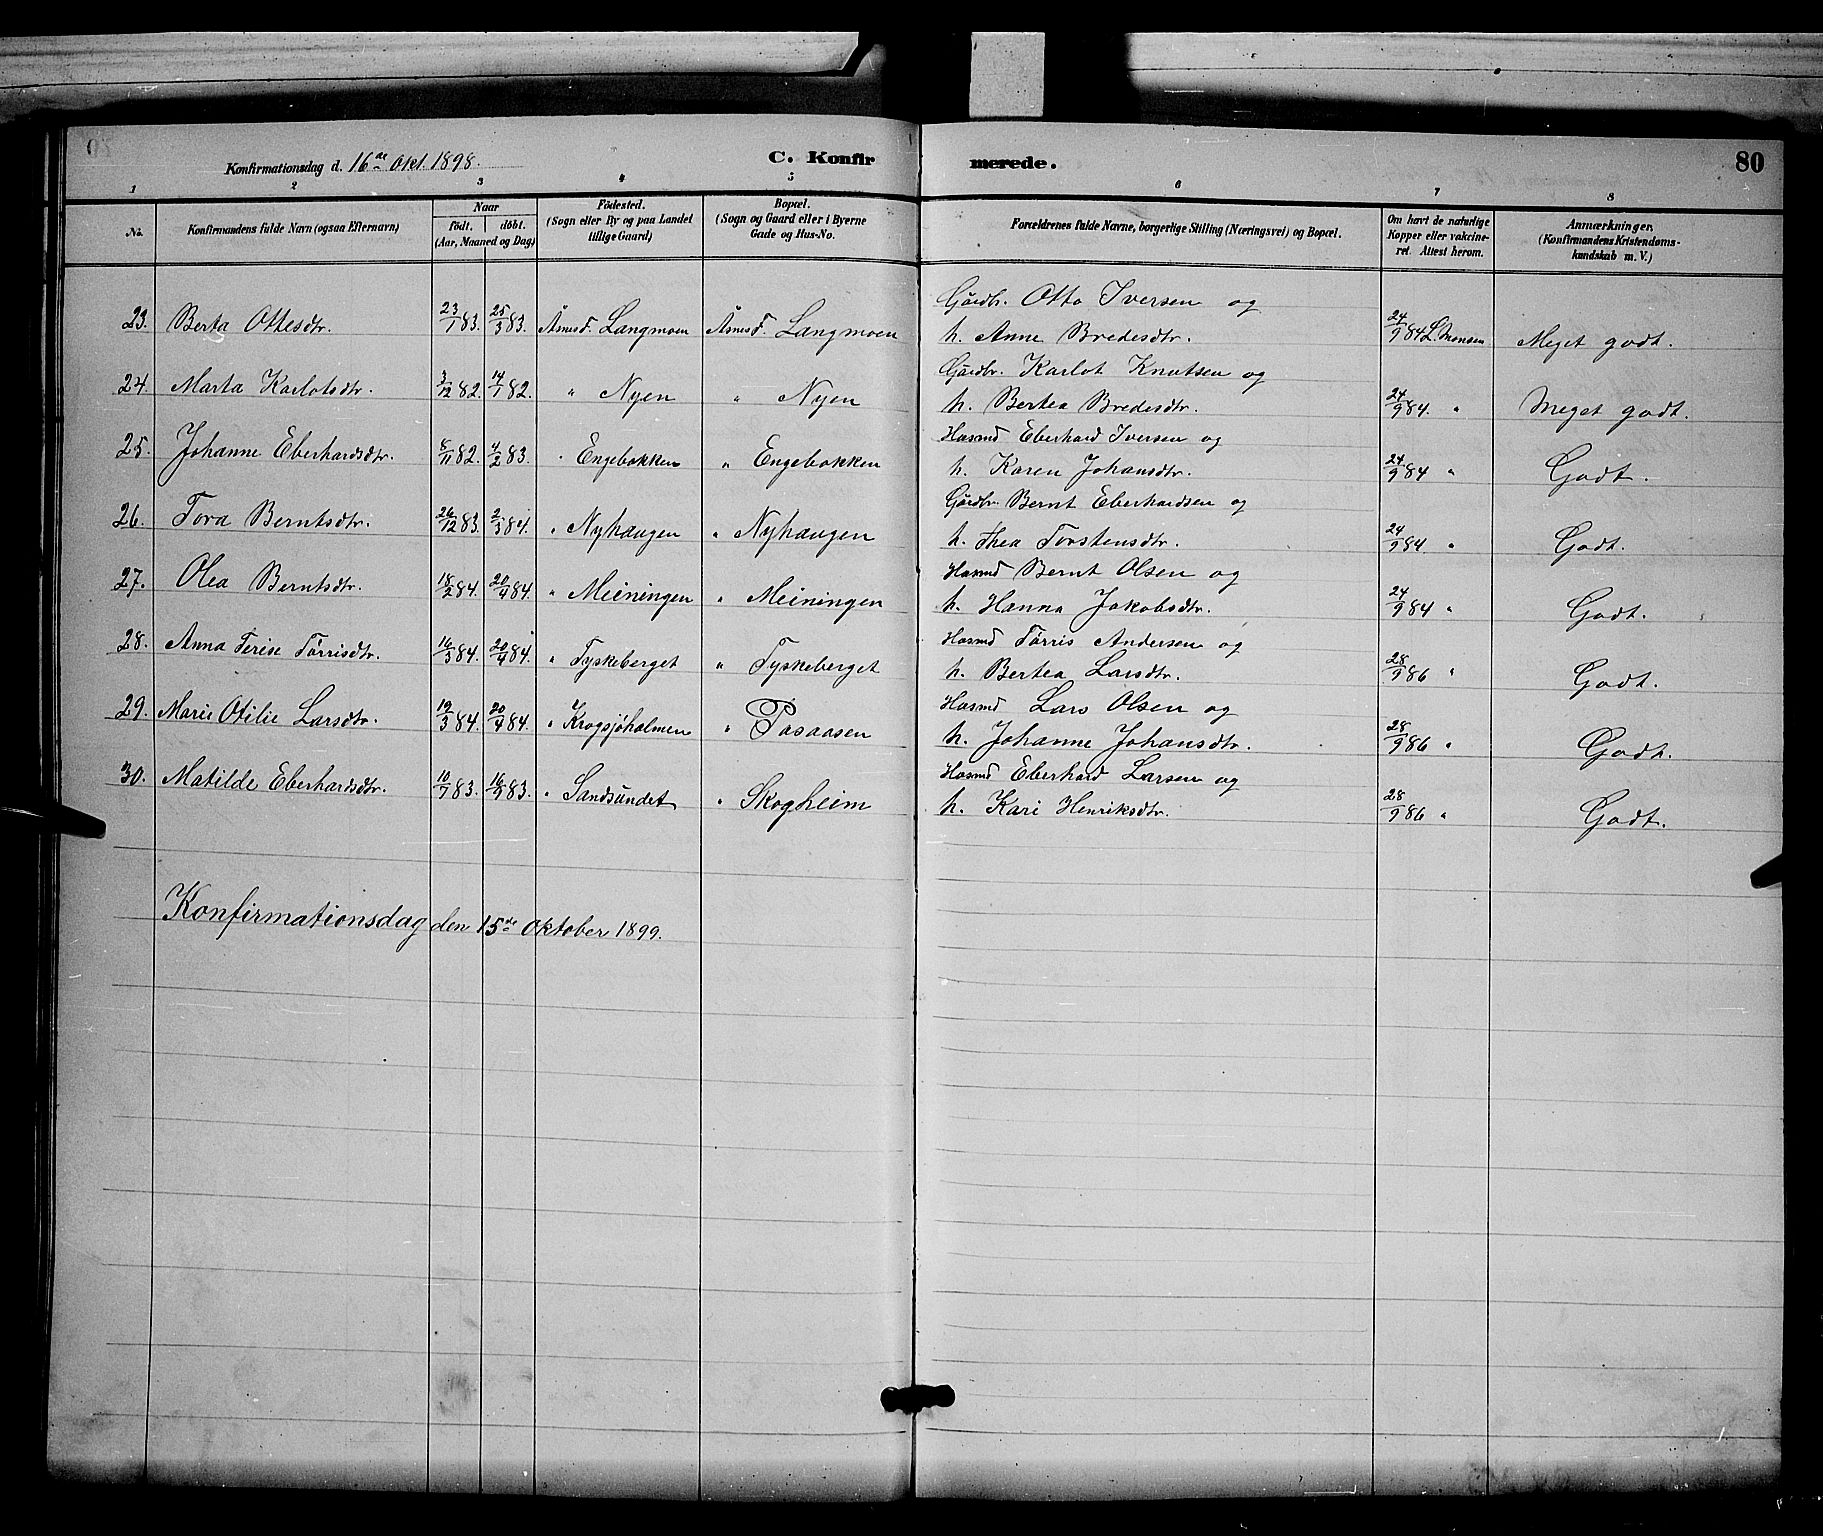 Konfirmationsdag d. 16de Okt. 1898.
C. Konfirmerede.
80
1 2 3 4 5 6 7 8
No.
Konfirmandens fulde Navn (ogsaa Efternavn)
Naar
født. døbt.
(Aar, Maaned og Dag)
Fødested.
(Sogn eller By og paa Landet
tillige Gaard)
Bopæl.
(Sogn og Gaard eller i Byerne
Gade og Hus-No.
Forældrenes fulde Navne, borgerlige Stilling (Næringsvei) og Bopæl.
Om havt de naturlige
Kopper eller vakcine-
ret. Attest herom.
Anmærkninger.
(Konfirmandens Kristendoms-
kundskab m. V.)
Gårdbr. Otto Iversen og
23. Berta Ottesdtr. 23/1 83. 25/3 83. Åsnes F. Langmoen Åsnes F. Langmoen h. Anne Bredesdtr. 24/9 84 L. Monsen Meget godt.
Gårdbr. Karlot Knutsen og
24. Marta Karlotsdtr. 3/12 82. 14/1 82. " Nyen " Nyen h. Bertea Bredesdtr. 24/9 84. " Meget godt.
Husmd Eberhard Iversen og
25. Johanne Eberhardsdtr. 8/11 82. 4/2 83. " Engebakken " Engebakken h. Karen Johansdtr. 24/9 84 " Godt.
Gårdbr. Bernt Eberhardsen og
26. Tora Berntsdtr. 26/12 83. 2/3 84. " Nyhaugen " Nyhaugen h. Thea Torstensdtr. 24/9 84 " Godt.
Husmd Bernt Olsen og
27. Olea Berntsdtr. 18/2 84. 20/4 84. " Meiningen " Meiningen h. Hanna Jakobsdtr. 24/9 84 " Godt.
Husmd Tørris Andersen og
28. Anna Terise Tørrisdtr. 16/3 84. 20/4 84. " Tyskeberget " Tyskeberget h. Bertea Larsdtr. 28/9 86 " Godt.
Husmd Lars Olsen og
29. Marie Otilie Larsdtr. 19/3 84. 20/4 84. " Krogsjøholmen " Pasaasen h. Johanne Johansdtr. 28/9 86 " Godt.
Husmd Eberhard Larsen og
30. Matilde Eberhardsdtr. 10/7 83. 16/9 83. " Sandsundet " Skogheim h. Kari Henriksdtr. 28/9 86 " Godt.
Konfirmationsdag den 15de Oktober 1899.